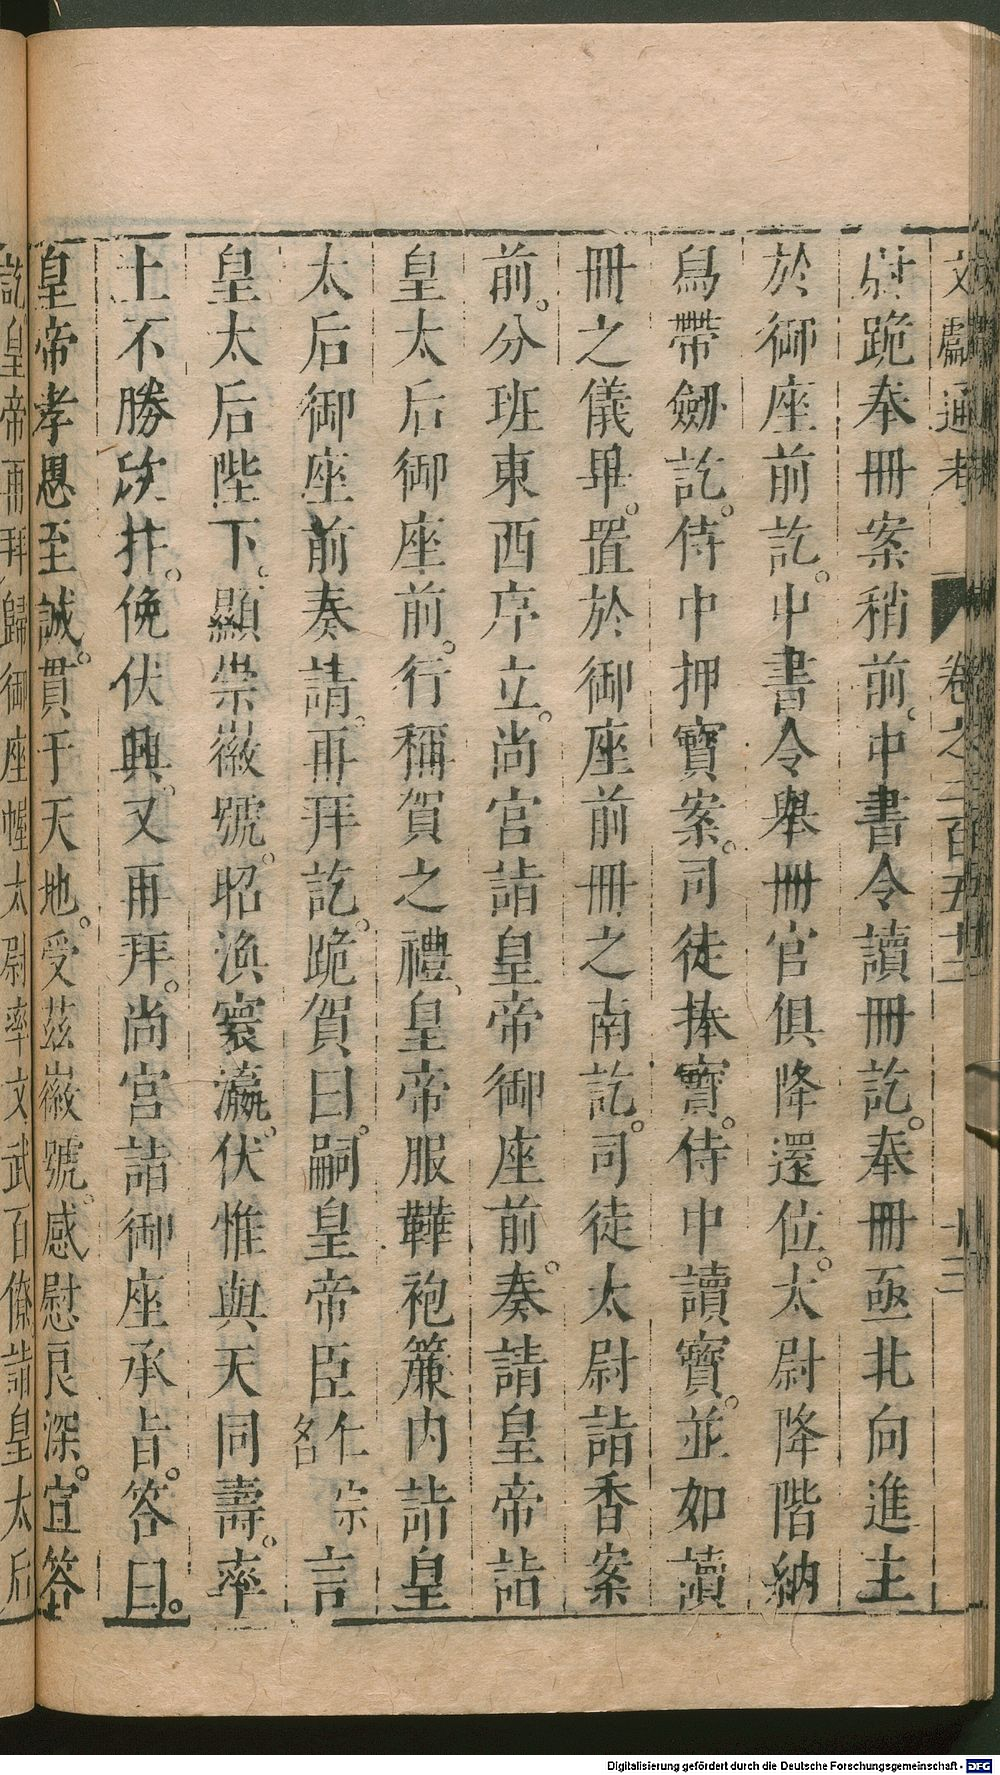 文獻通考 卷之二百五十二 十三
尉跪奉冊案稍前。中書令讀冊訖。奉冊亟北向進主
於御座前訖。中書令舉冊官俱降還位。太尉降階納
舄帶劒訖。侍中押寳案。司徒捧寳。侍中讀寳。並如讀
冊之儀畢。置於御座前冊之南訖。司徒太尉詣香案
前。分班東西序立。尚宮詣皇帝御座前。奏請皇帝詣
皇太后御座前。行稱賀之禮、皇帝服鞾袍簾內詣皇
太后御座前奏請。再拜訖。跪賀曰。嗣皇帝臣仁宗名言
皇太后陛下。顯崇徽號。昭渙寰瀛。伏惟與天同壽。率
土不勝欣抃。俛伏興。又再拜。尚宮詣御座承旨。答曰。
皇帝孝思至誠。貫于天地。受茲徽號。感慰良深。宣答
訖皇帝再拜歸御座幄太尉率文武百僚詣皇太后
Digitalisierung gefördert durch die Deutsche Forschungsgemeinschaft - DFG